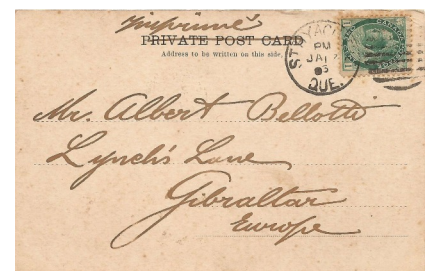 Imprimés
PRIVATE POST CARD
Address to be written on this side.
PM
JA
QUE.
Mr. Albert Bellotti
Lynch's Lane
Gibraltar
Europe